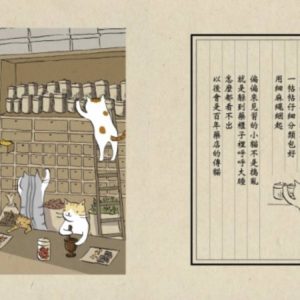 一帖帖仔細分類包好
用細麻繩綑起
偏偏來見習的小貓不是搗亂
就是躲到藥櫃子裡呼呼大睡
怎麼都看不出
以後會是百年藥店的傳貓